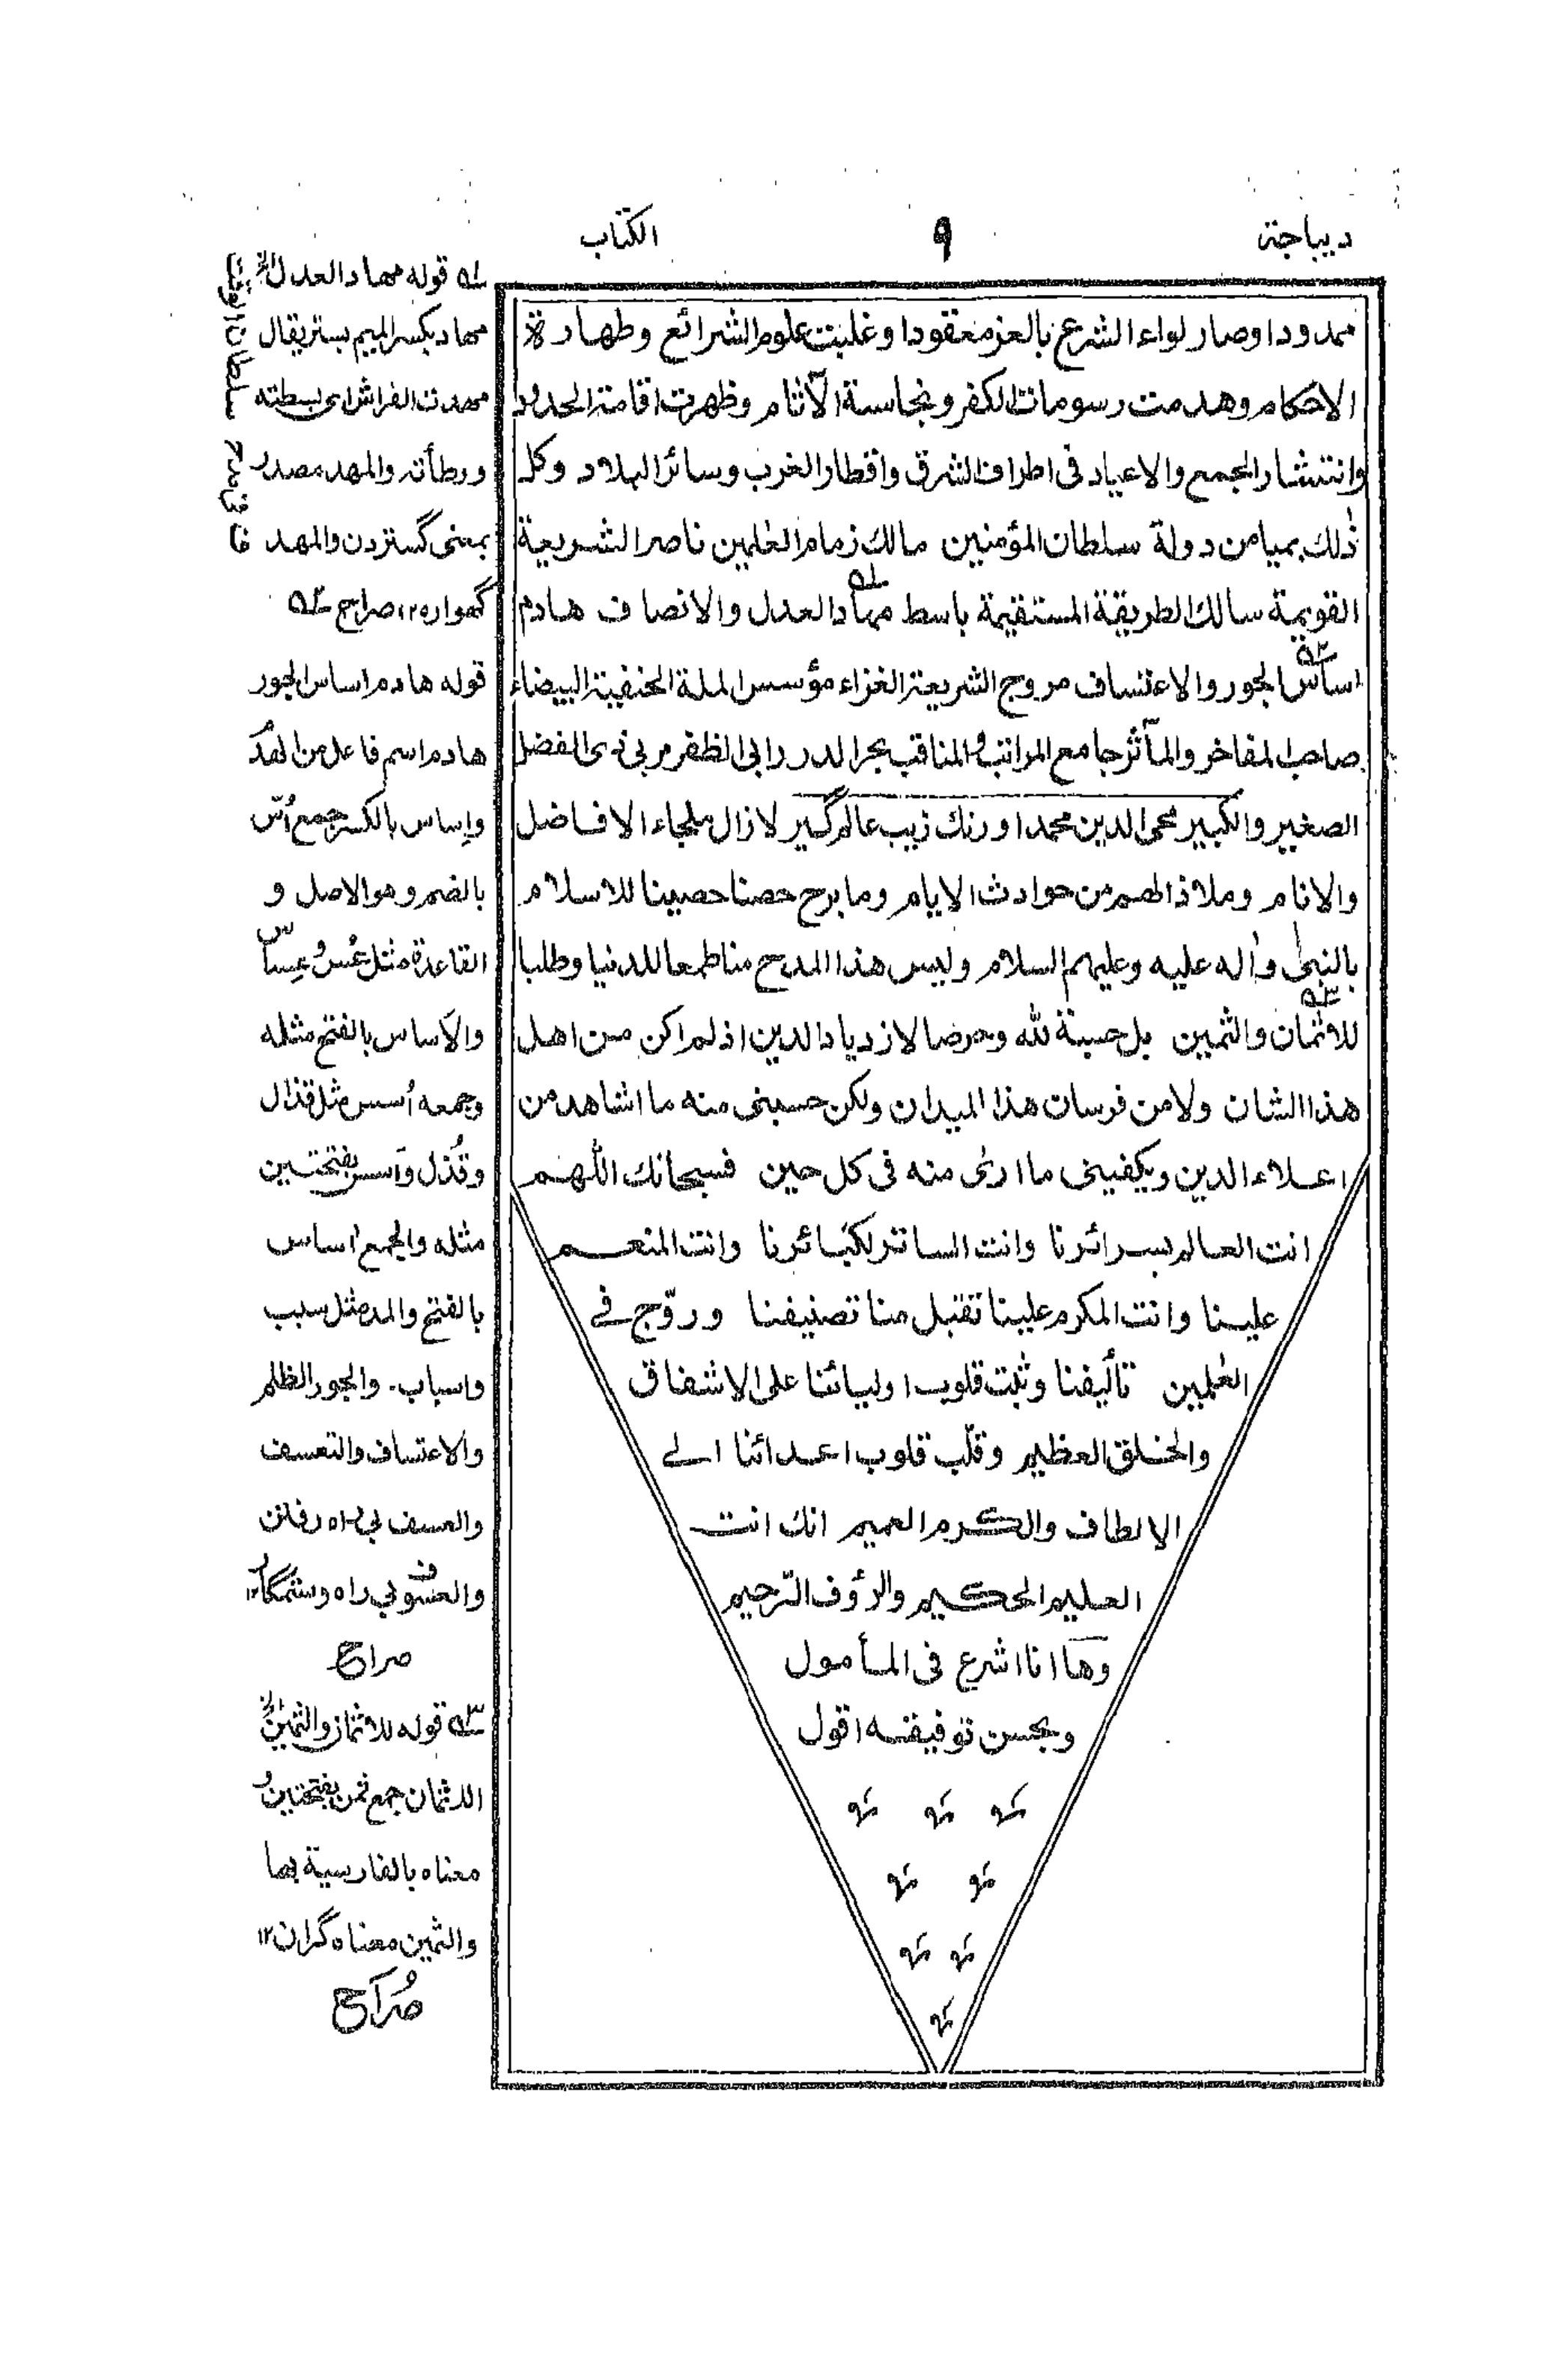 ديباجة
٩
الكتاب
ممدودا وصار لواء الشرع بالعز معقودا وغلبت علوم الشرائع وطهارة
الاحكام وهدمت رسومات الكفر ونجاسة الآثام وظهرت اقامة الحدود
وانتشار الجمع والاعياد فى اطراف الشرق واقطار الغرب وسائر البلاد وكل
ذٰلك بميامن دولة سلطان المؤمنين مالك زمام العٰلمين ناصر الشريعة
القويمة سالك الطريقة المستقيمة باسط مهاد العدل والانصاف هادم
اساس الجور والاعتساف مروج الشريعة الغراء مؤسس الملة الحنفية البيضاء
صاحب المفاخر والمآثر جامع المراتب والمناقب بحر الدرر ابى الظفر مربى ذوى الفضل
الصغير والكبير محى الدين محمد اورنك زيب عالم گير لازال ملجاء الافاضل
والانام وملاذا لهم من حوادث الايام وما برح حصنا حصينا للاسلام
بالنبى واٰله عليه وعليهم السلام وليس هذا المدح منا طمعا للدنيا وطلبا
للاثمان والثمين بل حسبة لله وحرضا لازدياد الدين اذ لم اكن من اهل
هذا الشان ولا من فرسان هذا الميدان ولكن حسبنى منه ما اشاهد من
اعلاء الدين ويكفينى ما ارىٰ منه فى كل حين فسبحانك اللّٰهم
انت العالم بسرائرنا وانت الساتر لكبائرنا وانت المنعم
علينا وانت المكرم علينا تقبل منا تصنيفنا وروّج فے
العٰلمين تأليفنا وثبت قلوب اوليائنا على الاشفاق
والخلق العظيم وقلّب قلوب اعدائنا الے
الالطاف والكرم العميم انك انت
العليم الحكيم والرؤف الرّحيم
وها انا اشرع فى المأمول
وبحسن توفيقه اقول
؎۱ قوله مهاد العدل الخ
مهاد بكسر الميم بستر يقال
مهدت الفراش اى بسطته
ووطأته والمهد مصدر
بمعنى گستردن والمهد
گهواره ١٢ صراح ؎۲
قوله هادم اساس الجور
هادم اسم فاعل من الهدم
وإساس بالكسر جمع اُسّ
بالضم وهو الاصل و
القاعدة مثل عُسّ وعِساس
والاَساس بالفتح مثله
وجمعه اُسس مثل قذال
وقُذُل واَسس بفتحتين
مثله والجمع اٰساس
بالفتح والمد مثل سبب
واسباب. والجور الظلم
والاعتساف والتعسف
والعسف بى راه رفتن
والعسوف بى راه وستمگار ١٢
صراح
؎۳ قوله للاثمان والثمين الخ
الاثمان جمع ثمن بفتحتين و
معناه بالفارسية بها
والثمين معناه گران ١٢
صُرَاح